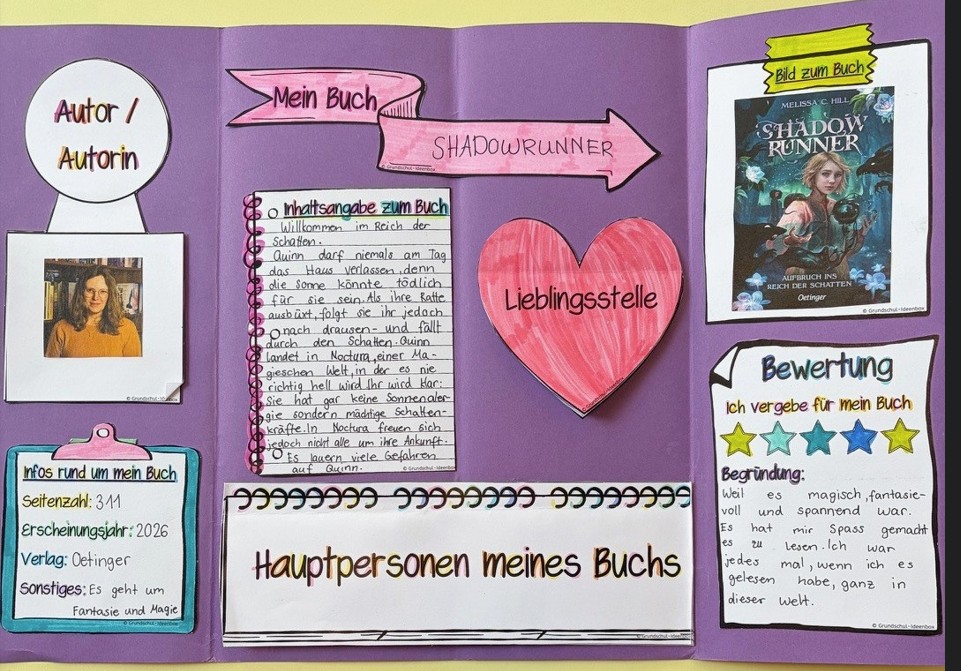 Autor /
Autorin
Infos rund um mein Buch
Seitenzahl: 311
Erscheinungsjahr: 2026
Verlag: Oetinger
Sonstiges: Es geht um
Fantasie und Magie
© Grundschul-Ideenbox
Mein Buch
SHADOWRUNNER
© Grundschul-Ideenbox
Inhaltsangabe zum Buch
Willkommen im Reich der
Schatten.
Quinn darf niemals am Tag
das Haus verlassen, denn
die Sonne könnte tödlich
für sie sein. Als ihre Ratte
ausbüxt, folgt sie ihr jedoch
nach drausen- und fällt
durch den Schatten. Quinn
landet in Noctura, einer Ma-
gieschen Welt, in der es nie
richtig hell wird. Ihr wird klar:
Sie hat gar keine Sonnenaler-
gie sondern mächtige Schatten-
kräfte. In Noctura freuen sich
jedoch nicht alle um ihre Ankunft.
Es lauern viele Gefahren
auf Quinn.
© Grundschul-Ideenbox
Lieblingsstelle
Hauptpersonen meines Buchs
Bild zum Buch
MELISSA C. HILL
SHADOW
RUNNER
AUFBRUCH INS
REICH DER SCHATTEN
Oetinger
© Grundschul-Ideenbox
Bewertung
Ich vergebe für mein Buch
Begründung:
Weil es magisch, fantasie-
voll und spannend war.
Es hat mir Spass gemacht
es zu lesen. Ich war
jedes mal, wenn ich es
gelesen habe, ganz in
dieser Welt.
© Grundschul-Ideenbox